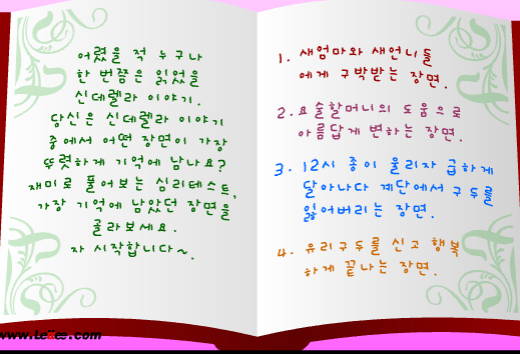 어렸을 적 누구나
한 번쯤은 읽었을
신데렐라 이야기.
당신은 신데렐라 이야기
중에서 어떤 장면이 가장
뚜렷하게 기억에 남나요?
재미로 풀어보는 심리테스트,
가장 기억에 남았던 장면을
골라보세요.
자 시작합니다~.
1. 새엄마와 새언니들
에게 구박받는 장면.
2.요술할머니의 도움으로
아름답게 변하는 장면.
3. 12시 종이 울리자 급하게
달아나다 계단에서 구두를
잃어버리는 장면.
4. 유리구두를 신고 행복
하게 끝나는 장면.